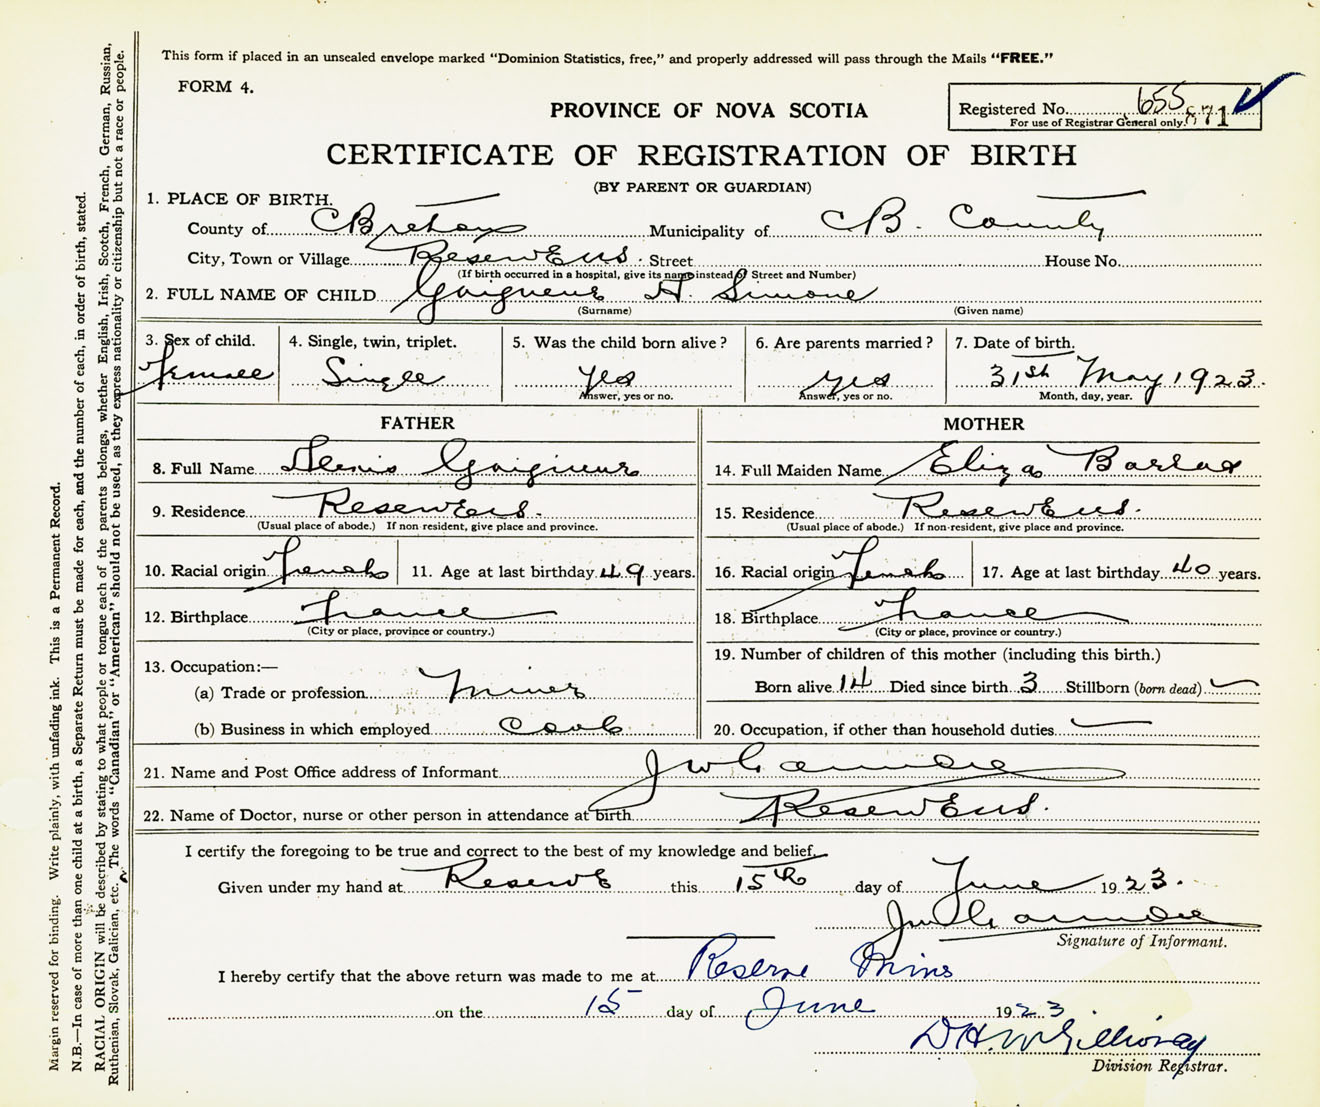 This form if placed in an unsealed envelope marked "Dominion Statistics, free," and properly addressed will pass through the Mails "FREE."
FORM 4.
PROVINCE OF NOVA SCOTIA
Registered No. 655
For use of Registrar General only. 871
CERTIFICATE OF REGISTRATION OF BIRTH
(BY PARENT OR GUARDIAN)
1. PLACE OF BIRTH.
County of C Breton Municipality of C B. County
City, Town or Village Street House No.
(If birth occurred in a hospital, give its name instead of Street and Number)
2. FULL NAME OF CHILD Gaigneur A. Simone
(Surname) (Given name)
3. Sex of child. 4. Single, twin, triplet. 5. Was the child born alive? 6. Are parents married? 7. Date of birth.
Female Single Yes Yes 31st May 1923.
Answer, yes or no. Answer, yes or no. Month, day, year.
FATHER MOTHER
8. Full Name Gaigneur 14. Full Maiden Name Eliza
9. Residence 15. Residence
(Usual place of abode.) If non-resident, give place and province. (Usual place of abode.) If non-resident, give place and province.
10. Racial origin French 11. Age at last birthday 49 years. 16. Racial origin French 17. Age at last birthday 40 years.
12. Birthplace France 18. Birthplace France
(City or place, province or country.) (City or place, province or country.)
13. Occupation:— 19. Number of children of this mother (including this birth.)
(a) Trade or profession Miner Born alive 14 Died since birth 3 Stillborn (born dead) —
(b) Business in which employed Coal 20. Occupation, if other than household duties —
21. Name and Post Office address of Informant
22. Name of Doctor, nurse or other person in attendance at birth
I certify the foregoing to be true and correct to the best of my knowledge and belief.
Given under my hand at Reserve this 15th day of June 1923.
Signature of Informant.
I hereby certify that the above return was made to me at Reserve Mines
on the 15 day of June 1923
Division Registrar.
Margin reserved for binding. Write plainly, with unfading ink. This is a Permanent Record.
N.B.—In case of more than one child at a birth, a Separate Return must be made for each, and the number of each, in order of birth, stated.
RACIAL ORIGIN will be described by stating to what people or tongue each of the parents belongs, whether English, Irish, Scotch, French, German, Russian,
Ruthenian, Slovak, Galician, etc. The words "Canadian" or "American" should not be used, as they express nationality or citizenship but not a race or people.